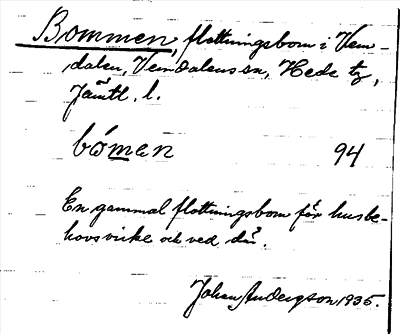 Bommen, flottningsbom i Vem-
dalen, Vemdalens sn, Hede tg,
Jämtl. l.
bómen 94
En gammal flottningsbom för husbe-
hovsvirke och ved där.
Johan Anderson 1935.